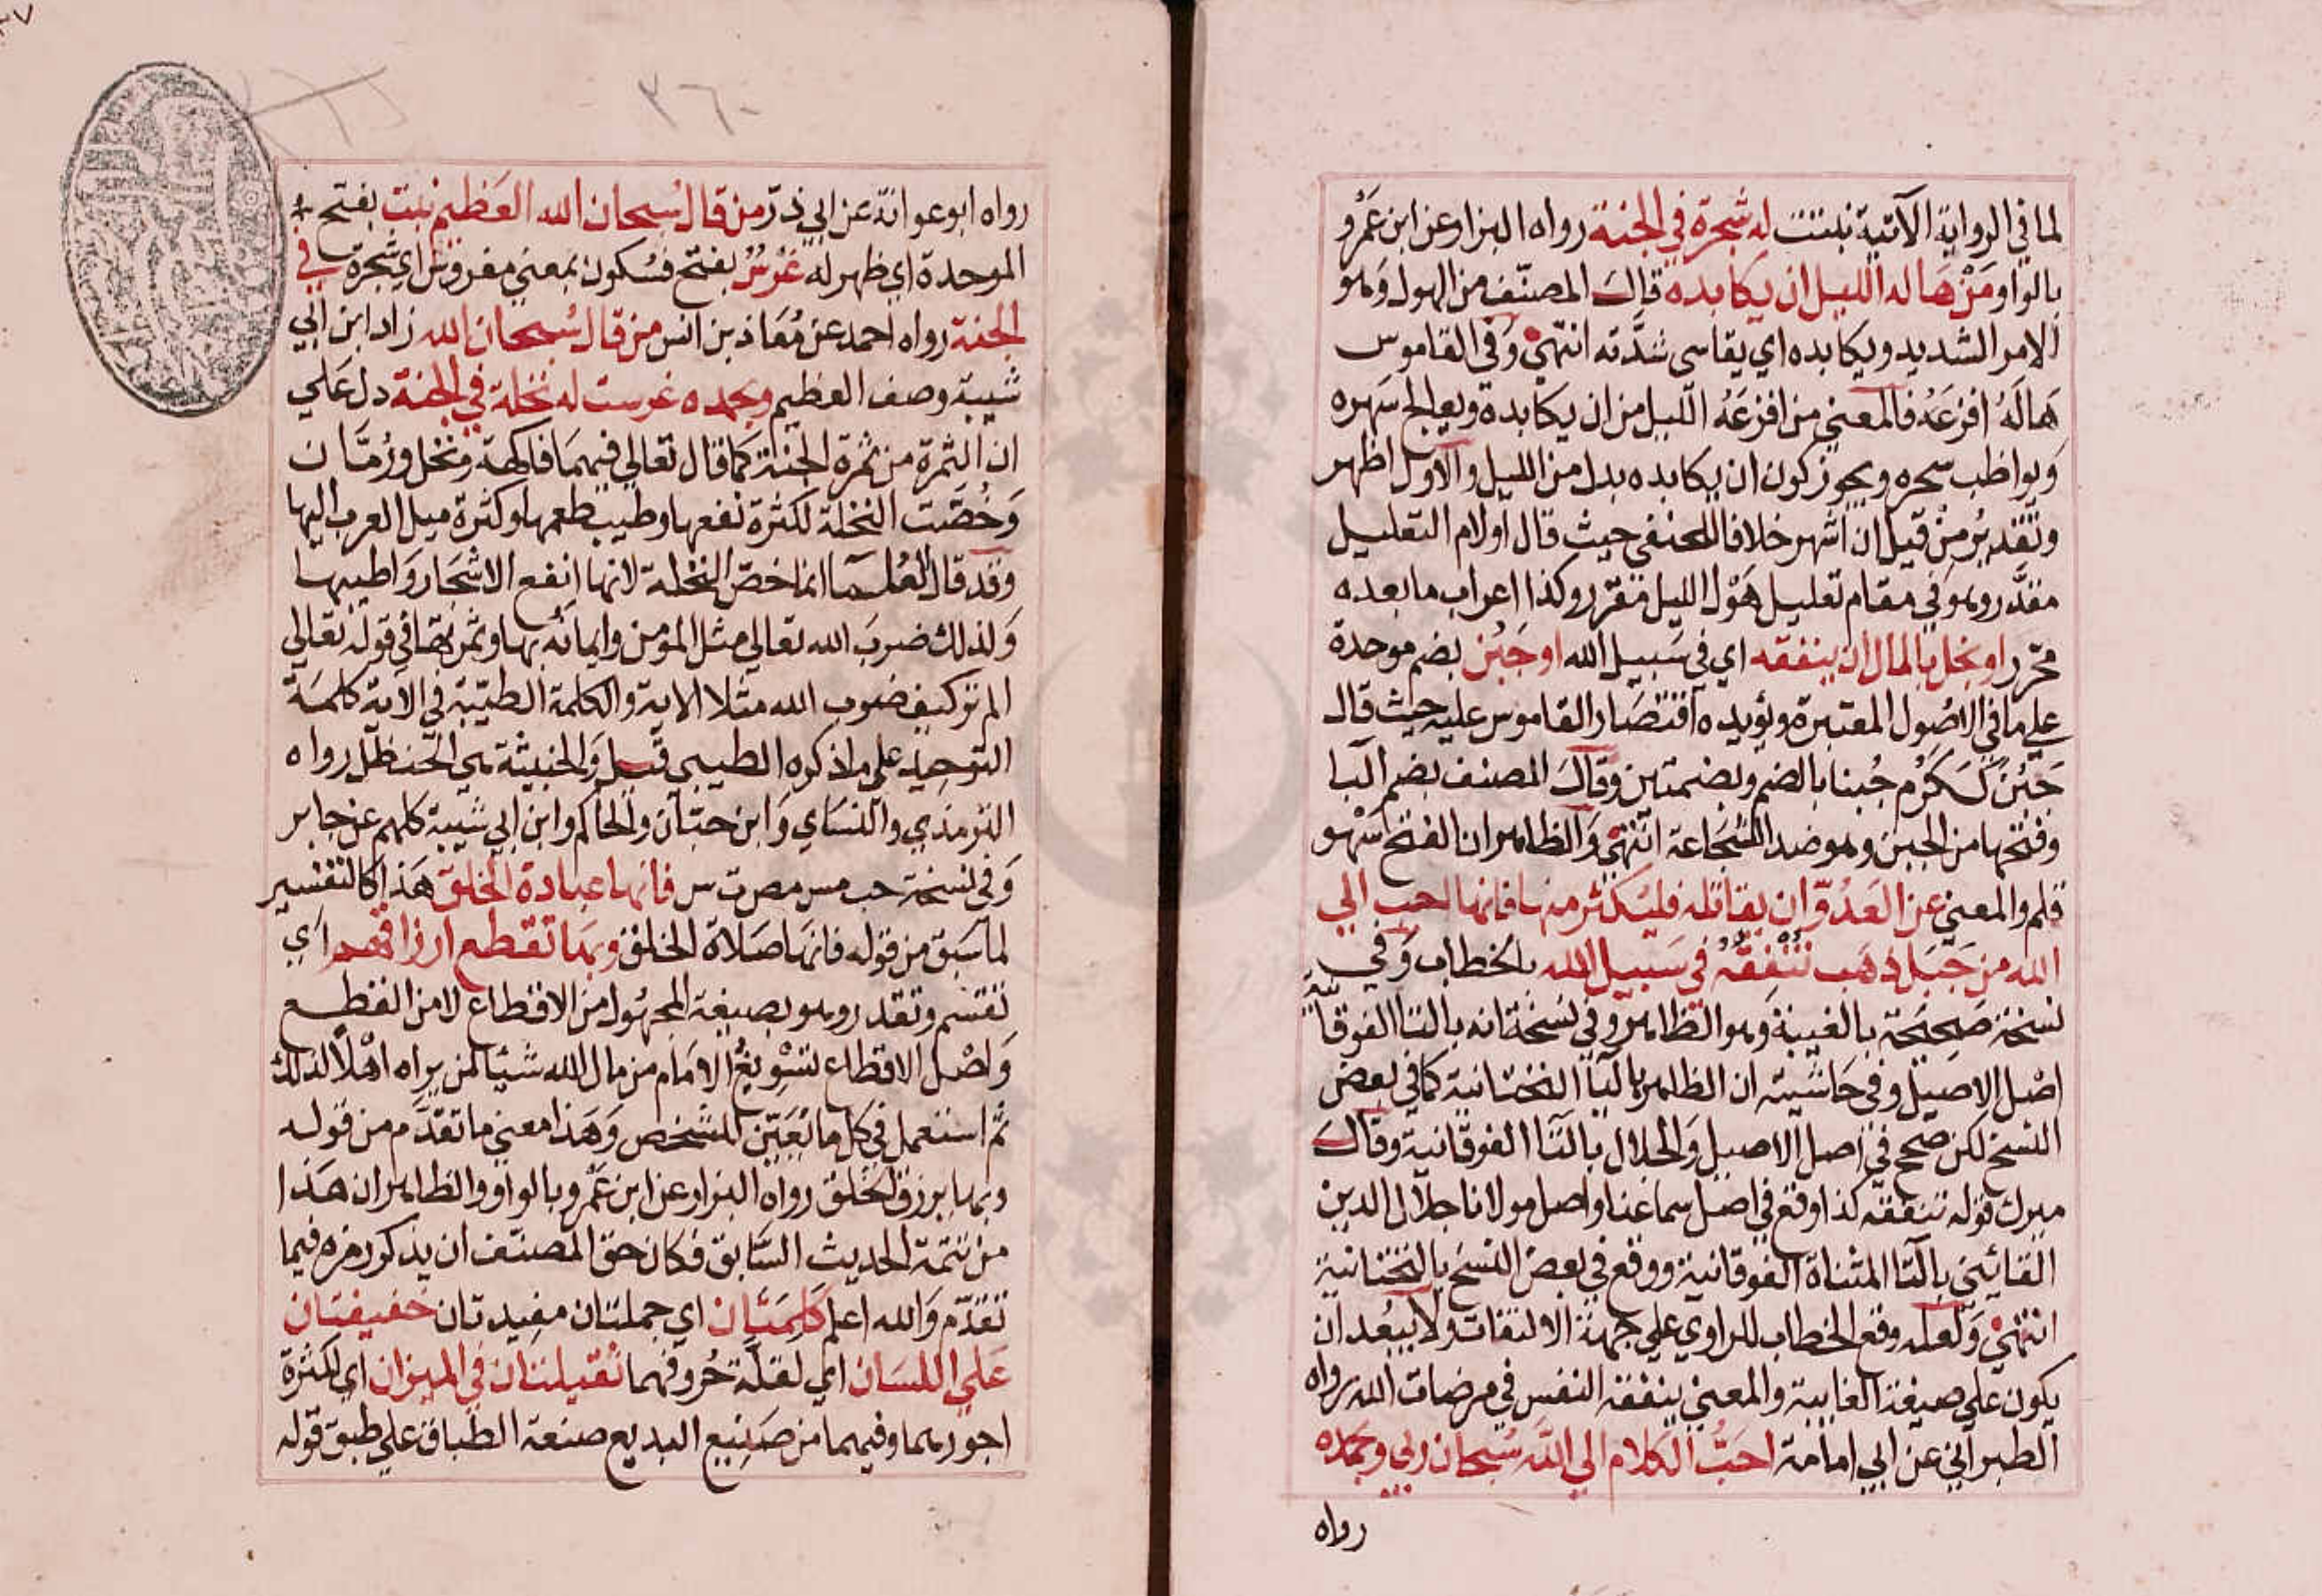 لما في الرواية الآتية نبتت له شجرة في الجنة رواه البزار وعن ابن عَمْرٍو
بالواو ومَنْ هَاله الليل ان يكابده قال المصنّف من الهول وَهو
الامر الشديد ويكابده اي يقاسى شدَّته انتهى وَفي القاموس
هَالَهُ افزعَهُ فالمعنى من افزعَهُ الليل من ان يكابده ويعالج سَهره
وَيواظب سحره ويجوز كون ان يكابده بدل من الليل والاول اظهر
وتقديرُ مِنْ قبل ان اشهر خلافا للحنفي حيث قال اولام التعليل
مقدَّر وهو في مقام تعليل هَوْل الليل مقرر وكذا اعراب ما بعده
محرّر او بخل بالمال ان ينفقه اي في سَبيل الله او جَبُن بضم موحدة
علي ما في الاصُول المعتبرة ويؤيده اقتصَار القاموس عليه حيث قال
جَبُنَ كَكَرُم جُبنا بالضم وبضمتين وقال المصنف بضم البا
وفتحها من الجبن وهو ضد الشجَاعة انتهى وَالظاهر ان الفتح سَهْو
قلم والمعنى عن العَدُوّ ان يقاتله فليُكثر منها فانها احب الي
الله من جَبَل ذهَب تُنْفِقُهُ في سَبيل الله بالخطاب وَفي
نسخة صَحيحَة بالغيبة وَهو الظاهر وفي نسْخة انه بالتا الفوقانية
اصْل الاصيل وفي حَاشية ان الظاهر بالتا التحتانية كما في بعض
النسخ لكن صحح في اصل الاصيل وَالجلال بالتا الفوقانية وقال
ميرك قوله تنفقه كذا وقع في اصل سماعنا واصل مولانا جلال الدين
القائني بالتا المثناة الفوقانية ووقع في بعض النسخ بالتحتانية
انتهى وَلعله وقع الخطاب للراوي علي جهة الالتفات ولا يبعُد ان
يكون علي صيغة الغايبة والمعنى ينفقه النفس في مرضات الله رواه
الطبراني عن ابي امامة احَبُّ الكلام الي الله سُبحان ربي وبحمده
رواه
٣٦٠
رواه ابو عوانة عن ابي ذرّ من قال سُبحان الله العَظيم نبت بفتح
الموحدة اي ظهر له غَرْسٌ بفتح فسُكون بمعنى مغروس اي شجرة في
الجنة رواه احمد عن مُعَاذ بن انس من قال سُبحان الله زاد ابن ابي
شيبة وصف العظيم وبحمده غرست له نخلة في الجنة دل عَلي
ان الثمرة من ثمرة الجنة كما قال تعالي فيهمَا فاكهة ونخل ورُمّان
وَخُصّت النخلة لكثرة نفعها وطيب طعمها وكثرة ميل العرب اليها
وقد قال العُلما انما خصّ النخلة لانها انفع الاشجَار وَاطيبها
وَلذلك ضربَ الله تعالي مثل المؤمن وايمانه بها وثمرتهَا في قوله تعالي
الم تر كيف ضرب الله مثلا الاية والكلمة الطيّبة في الاية كلمَة
التوحيد علي ما ذكره الطيبي قيل وَالخبيثة هي الحنظل رواه
الترمذي والنسَاي وَابن حبّان والحاكم وابن ابي شيبة كلهم عن جابر
وَفي نسخة حب مس مص ت س فانها عبادة الخلق هَذا كالتفسير
لما سَبق من قوله فانهَا صَلاة الخلق وبهَا تقطع ارزاقهم اي
تقسم وتقدر وهو بصيغة المجهُول من الاقطاع لا من القطع
وَاصْل الاقطاع تسْويغُ الامَام من مال الله شيئا لمن يراه اهْلا لذلك
ثم استعمل في كل ما تُعَيّن للشخص وَهَذا معنى ما تقدَّم من قوله
وبها يرزق الخلق رواه البزار عن ابن عَمْرو بالواو والظاهر ان هَذا
من تتمة الحديث السَّابق فكان حق المصنّف ان يذكر رمزه فيما
تقدّم وَالله اعلم كَلِمَتَان اي جملتان مفيدتان خفيفتان
عَلي اللسَان اي لقلّة حُروفهما ثقيلتان في الميزان اي لكثرة
اجورهما وفيهما من صَنيع البديع صنعة الطباق علي طبق قوله